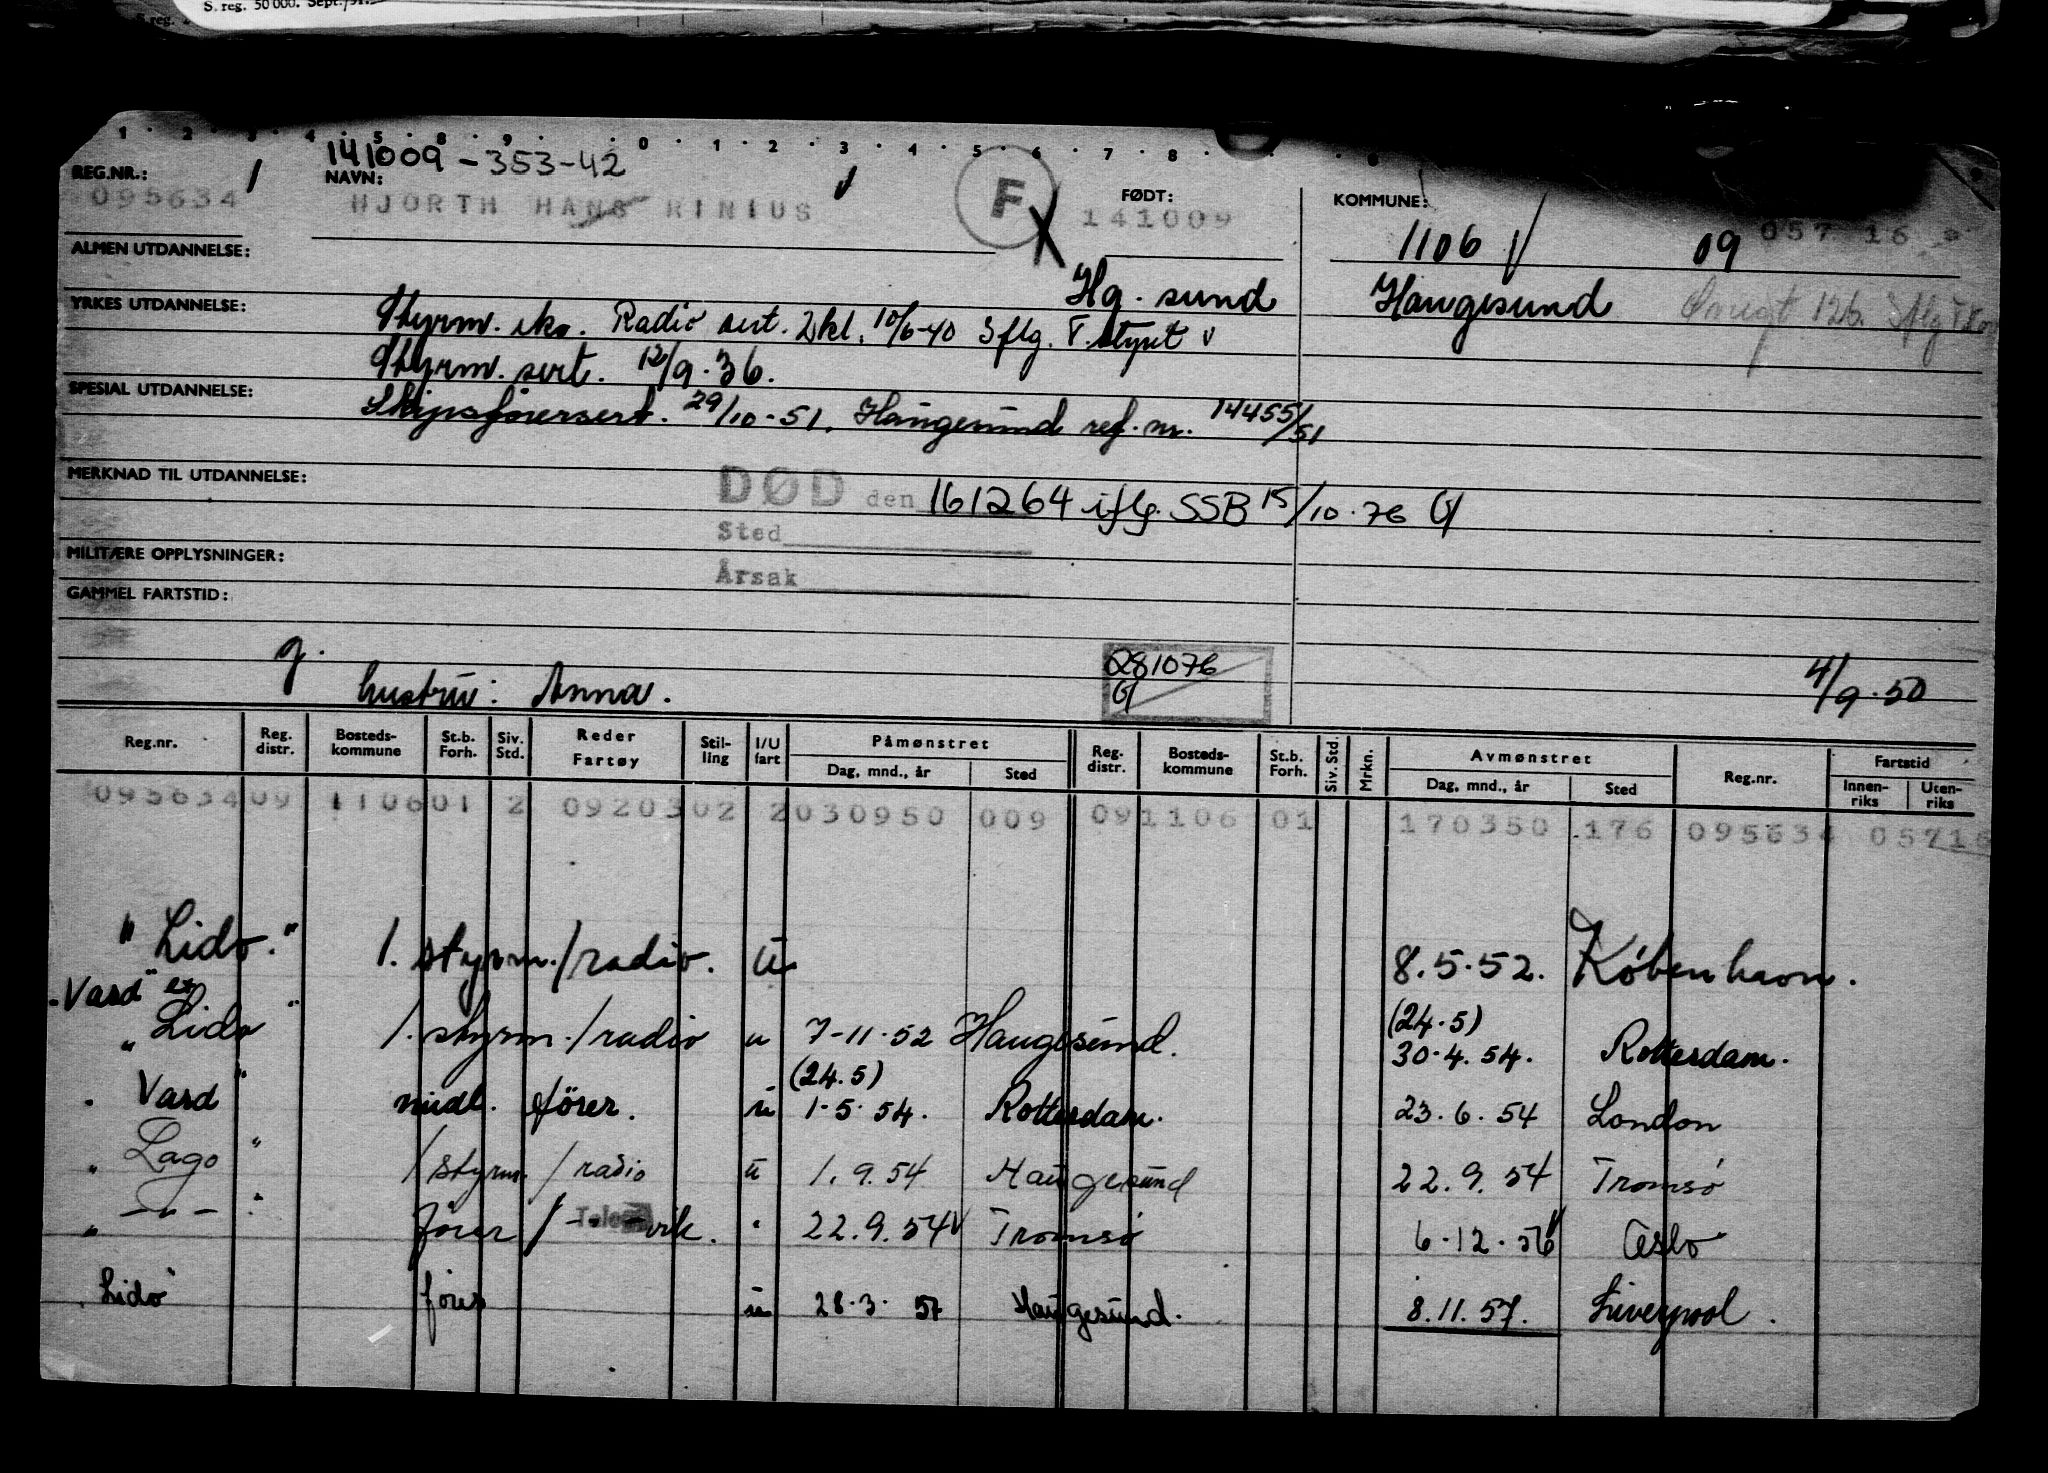 S. reg. 50 000. Sept. 51.
S. reg.
1 · 2 · 3 · 4 · 5 · 8 · 9 · 0 · 1 · 2 · 3 · 4 · 5 · 6 · 7 · 8
141009-353-42
REG.NR.: NAVN: FØDT: KOMMUNE:
095634 HJORTH HANS RINIUS F 141009 1106 09 057 16
ALMEN UTDANNELSE:
Hg.sund Haugesund
YRKES UTDANNELSE: Styrm. sko. Radio sert. 2 kl. 10/6-40 Iflg. T. styret
Styrm. sert. 12/9.36.
SPESIAL UTDANNELSE: Skipsførersert. 29/10-51. Haugesund ref. nr. 14455/51
MERKNAD TIL UTDANNELSE: DØD den 161264 iflg. SSB 15/10.76 G
Sted
MILITÆRE OPPLYSNINGER: Årsak
GAMMEL FARTSTID:
g.
281076 G 4/9.50
hustru: Anna.
Reg.nr. Reg. distr. Bosteds-kommune St.b. Forh. Siv. Std. Reder Fartøy Stil-ling I/U fart Påmønstret Dag, mnd., år Sted Reg. distr. Bosteds-kommune St.b. Forh. Siv. Std. Mrkn. Avmønstret Dag, mnd., år Sted Reg.nr. Fartstid Innen-riks Uten-riks
095634 09 1106 01 2 09203 02 2 030950 009 09 1106 01 170350 176 095634 05716
"Lido." 1. styrm./radio. u 8.5.52. København.
"Vard" ex
"Lido" 1. styrm./radio u 7-11-52 Haugesund. (24.5) 30.4.54. Rotterdam.
"Vard" midl. fører. u (24.5) 1.5.54. Rotterdam. 23.6.54 London
"Lago" 1 styrm./radio u 1.9.54 Haugesund 22.9.54 Tromsø
" -"- " fører / Tele vik. " 22.9.54 Tromsø 6.12.56 Oslo
"Lido" fører u 28.3.57 Haugesund. 8.11.57. Liverpool.